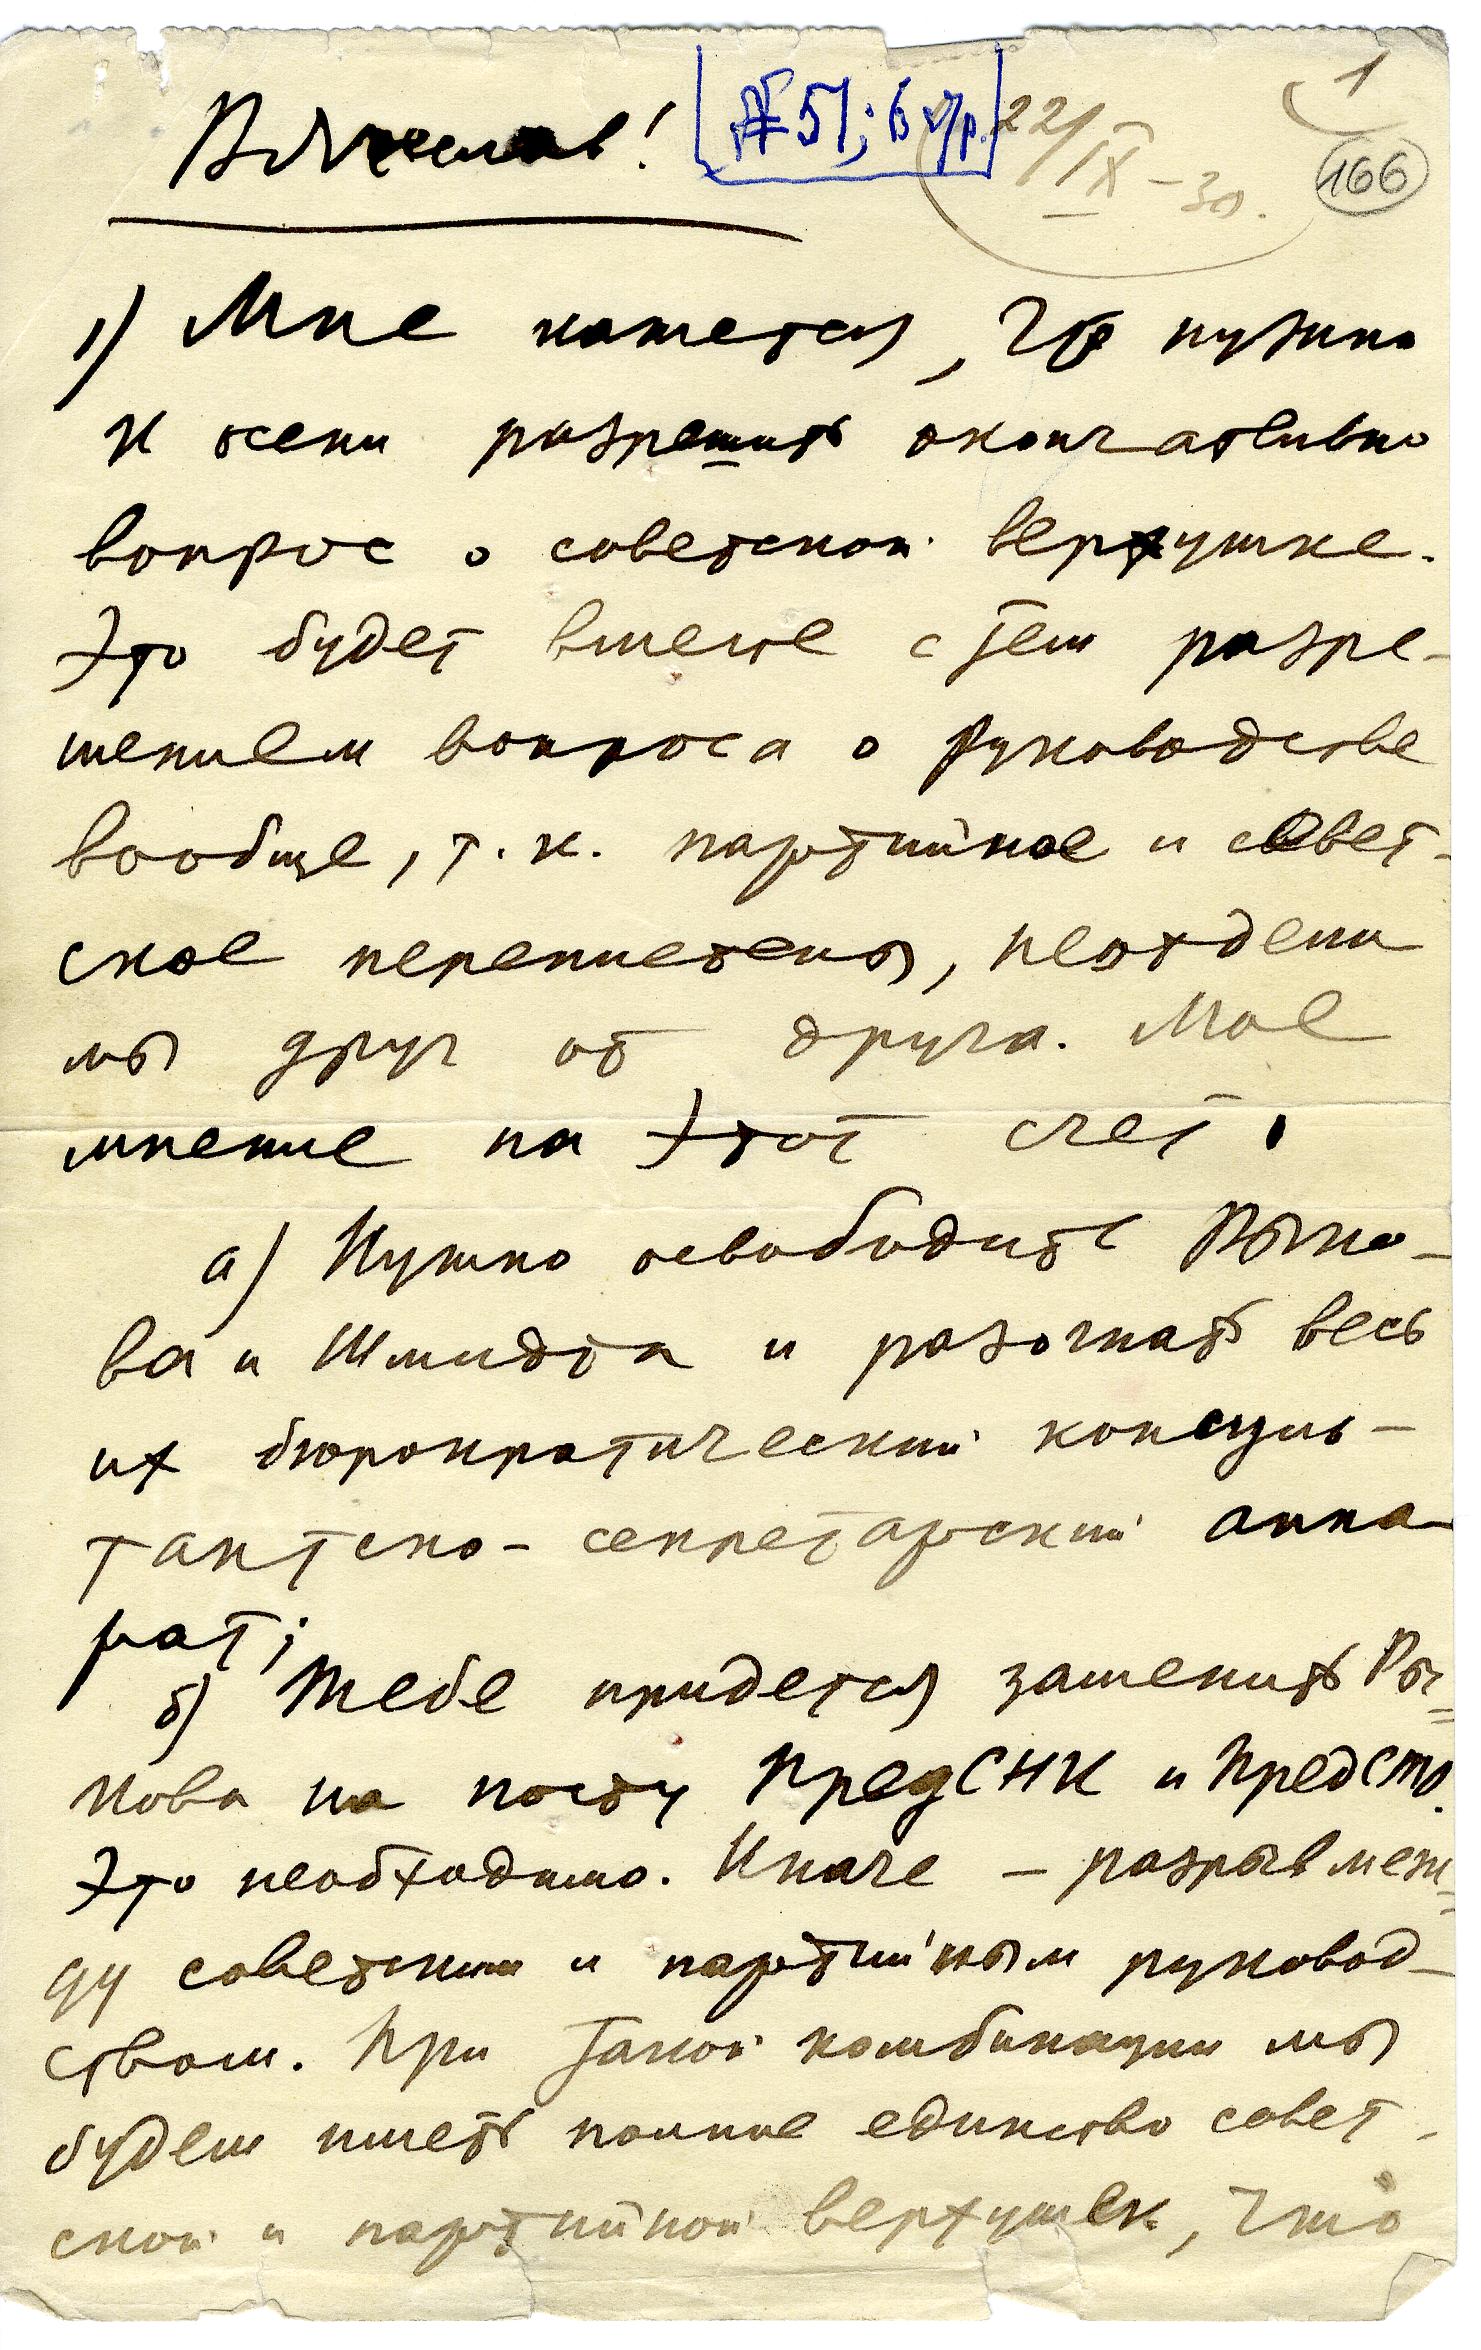 Вячеслав! [АФ 51; Б о/р.] 22/IX-30. 1
166
1) Мне кажется, что нужно
к осени разрешить окончательно
вопрос о советской верхушке.
Это будет вместе с тем разре-
шением вопроса о руководстве
вообще, т.к. партийное и совет-
ское переплетены, неотдели
мы друг от друга. Мое
мнение на этот счет:
а) Нужно освободить Рыко-
ва и Шмидта и разогнать весь
их бюрократический консуль-
тантско-секретарский аппа-
рат;
б) Тебе придется заменить Ры-
кова на посту ПредСНК и ПредСТО.
Это необходимо. Иначе – разрыв меж-
ду советским и партийным руковод-
ством. При такой комбинации мы
будем иметь полное единство совет-
ской и партийной верхушек, что